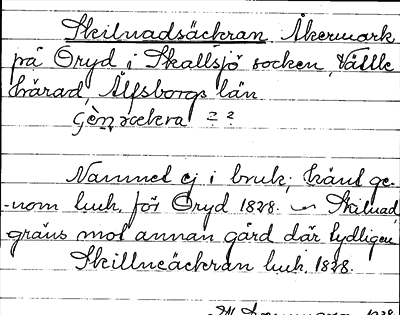 Skilnadsäckran Åkermark
på Öryd i Skallsjö socken, Vättle
härad, Älfsborgs län
Nammet ej i bruk, känt ge-
-nom luck. för Öryd 1828. Skilnad
gräns mot annan gård där tydligen
Skillneäckran luck. 1828.